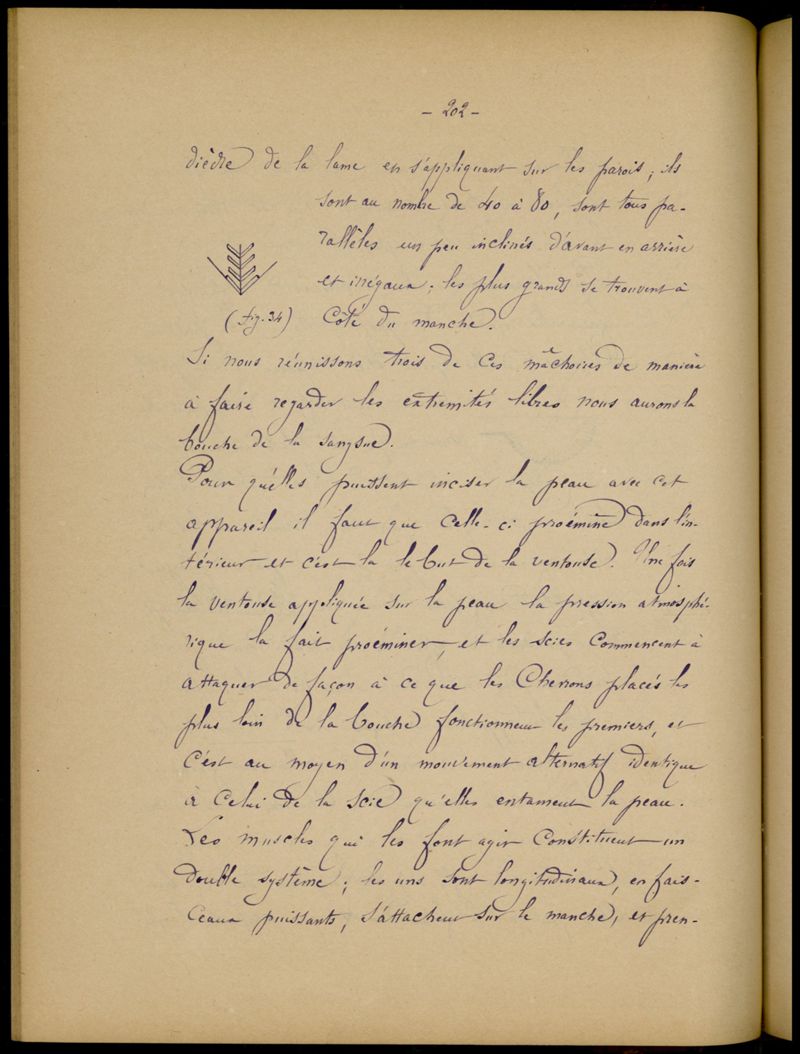 - 202 -
dièdre de la lame en s'appliquant sur les parois; ils
sont au nombre de 40 à 80, sont tous pa-
rallèles un peu inclinés d'avant en arrière
et inégaux; les plus grands se trouvent à
(fig. 34) Côté du manche.
Si nous réunissons trois de ces mâchoires de manière
à faire regarder les extremités libres nous aurons la
bouche de la sangsue.
Pour qu'elles puissent inciser la peau avec cet
appareil il faut que celle-ci proémine dans l'in-
térieur et c'est là le but de la ventouse. Une fois
la ventouse appliquée sur la peau la pression atmosphé-
rique la fait proéminer, et les scies commencent à
attaquer de façon à ce que les Chevrons placés les
plus loin de la bouche fonctionnent les premiers, et
c'est au moyen d'un mouvement alternatif identique
à celui de la scie qu'elles entament la peau.
Les muscles qui les font agir constituent un
double système; les uns sont longitudinaux, en fais-
ceaux puissants, s'attachent sur le manche, et pren-